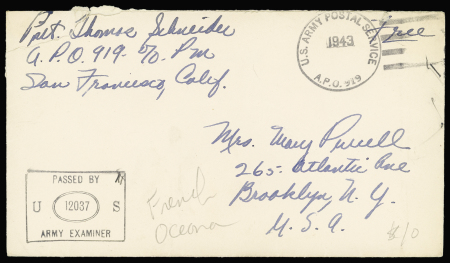 Pvt. Thomas Schneider
A.P.O. 919 - c/o P.m
San Francisco, Calif.
U.S. ARMY POSTAL SERVICE
1943
A.P.O. 919
Free
Mrs. Mary Purcell
265 - Atlantic Ave
Brooklyn, N.Y.
U.S.A.
PASSED BY
U 12037 S
ARMY EXAMINER
French
Oceania
$10